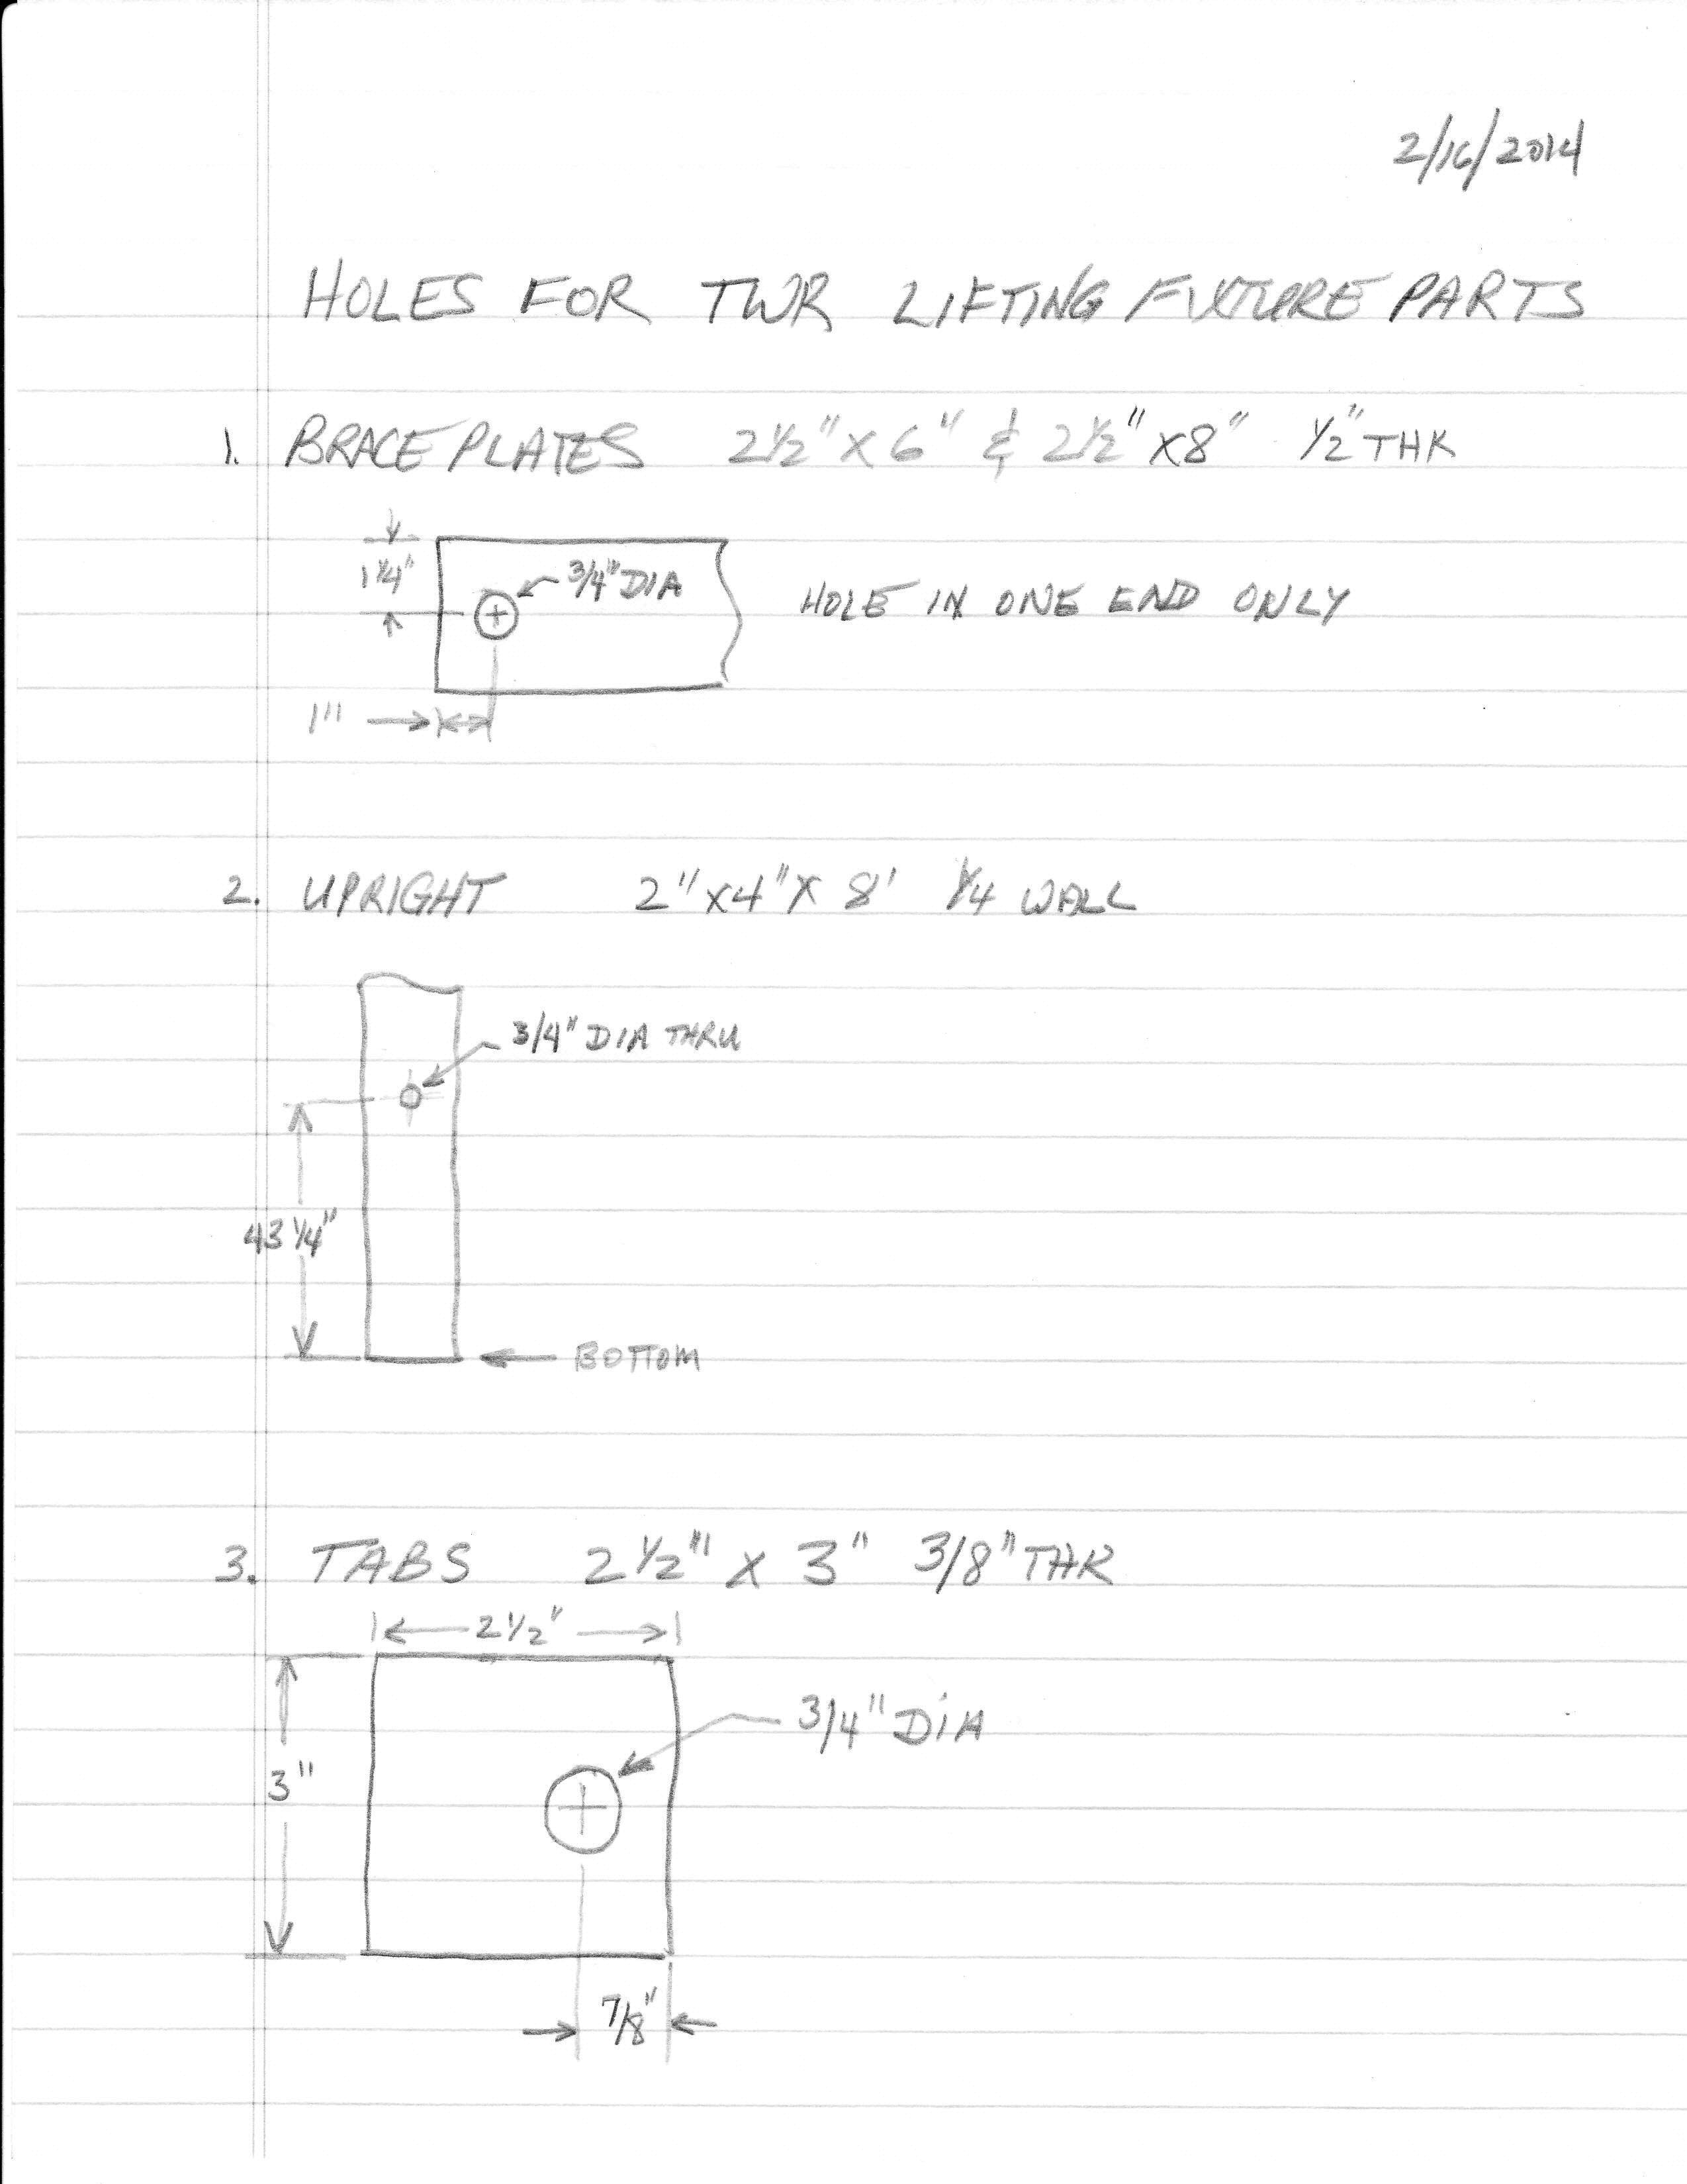 2/16/2014
HOLES FOR TWR LIFTING FIXTURE PARTS
1. BRACE PLATES 2 1/2" X 6" & 2 1/2" X 8" 1/2" THK
1 1/4"
3/4" DIA
HOLE IN ONE END ONLY
1"
2. UPRIGHT 2" X 4" X 8' 1/4 WALL
3/4" DIA THRU
43 1/4"
BOTTOM
3. TABS 2 1/2" X 3" 3/8" THK
2 1/2"
3/4" DIA
3"
7/8"